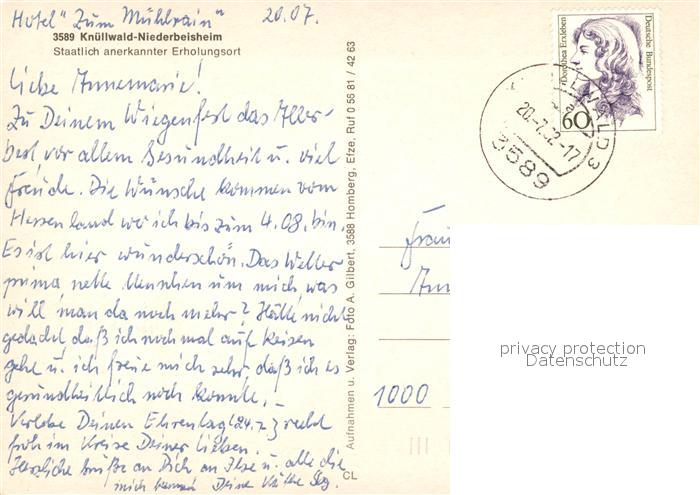 Hotel "Zum Mühlrain" 20.07.
3589 Knüllwald-Niederbeisheim
Staatlich anerkannter Erholungsort
Liebe Annemarie!
Zu Deinem Wiegenfest das Aller-
best vor allem Gesundheit u. viel
Freude. Die Wünsche kommen vom
Hessenland wo ich bis zum 4.08. bin.
Es ist hier wunderschön. Das Wetter
prima nette Menschen um mich was
will man da noch mehr? Hätte nicht
gedacht, daß ich noch mal auf Reisen
gehe u. ich freue mich sehr, daß ich es
gesundheitlich noch konnte. –
Verlebe Deinen Ehrentag (24.7.) recht
froh im Kreise Deiner Lieben.
Herzliche Grüße an Dich an Ilse u. alle die
mich kennen Deine Käthe
Aufnahmen u. Verlag: Foto A. Gilbert, 3588 Homberg, Efze, Ruf 0 56 81 / 42 63
CL
Dorothea Erxleben
Deutsche Bundespost
60
20.-7.92-17
3589
Frau
1000
privacy protection
Datenschutz